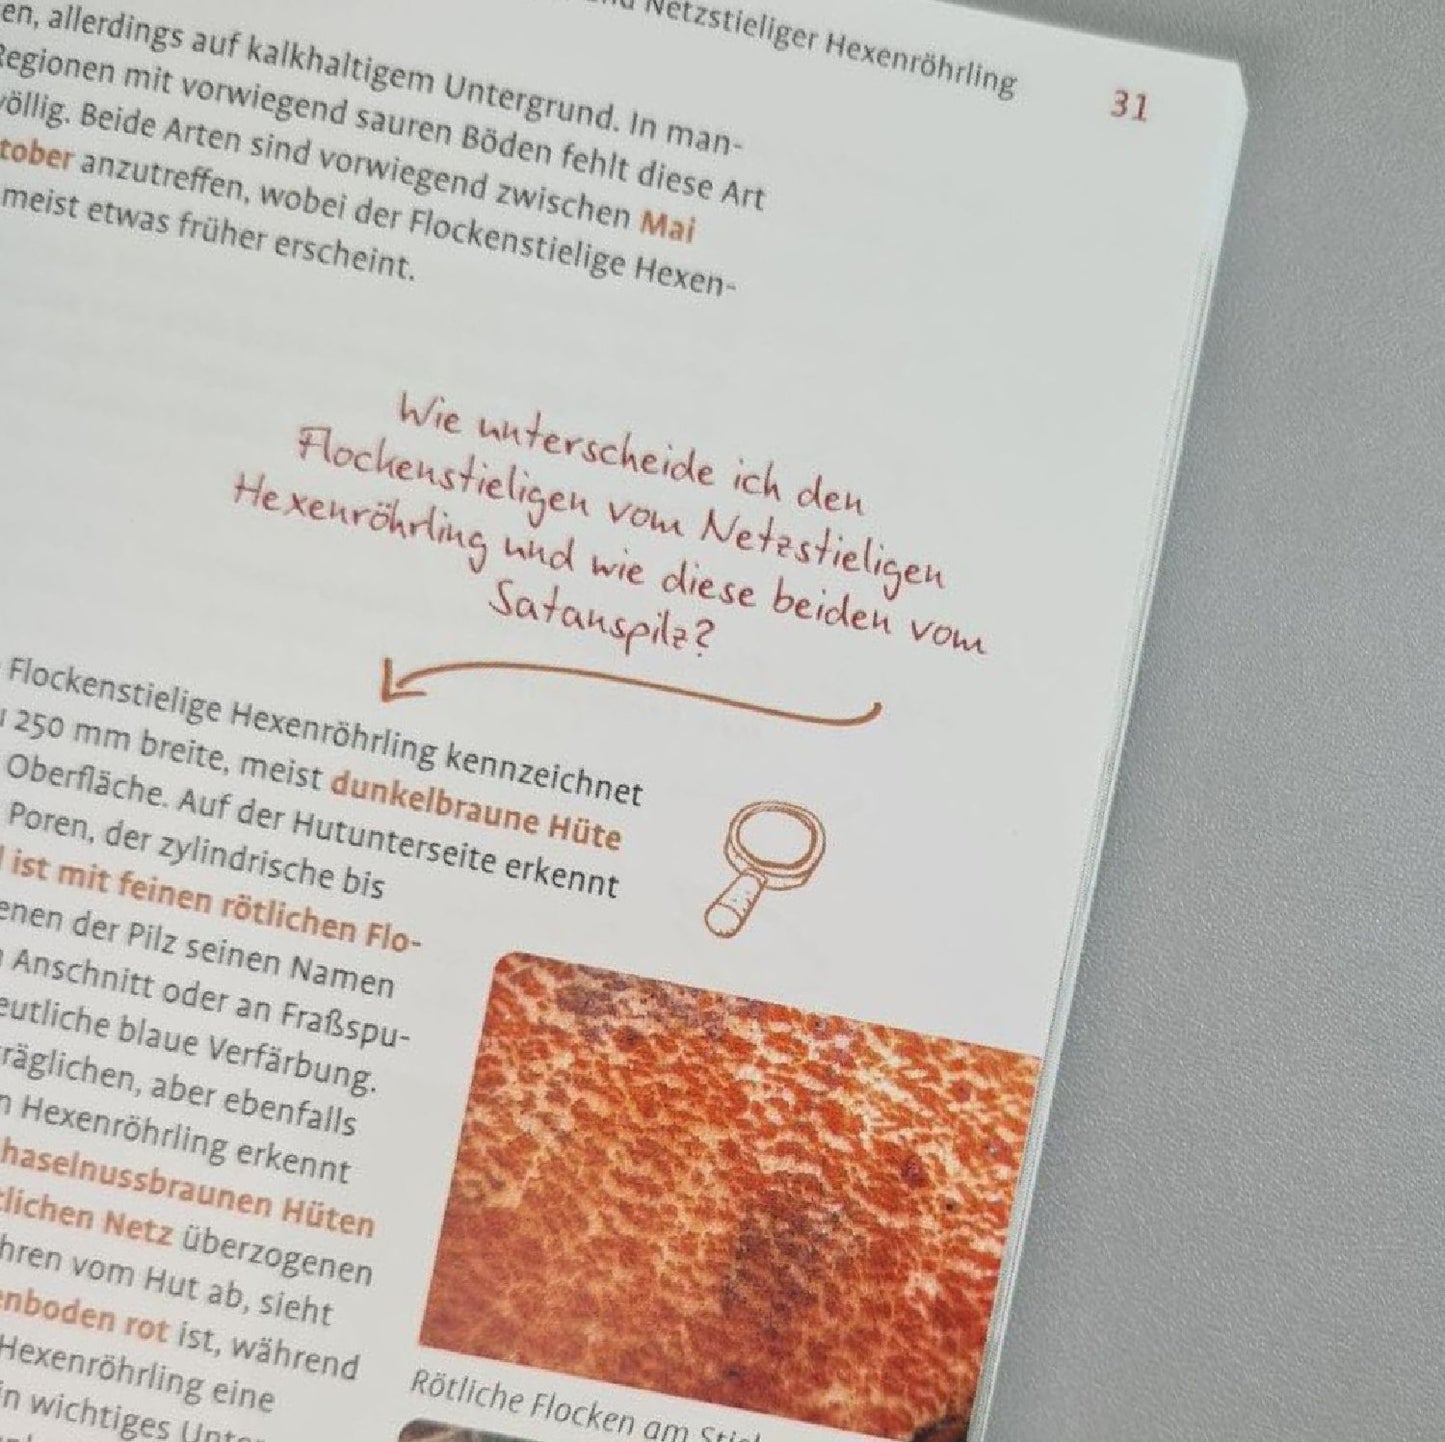 Netzstieliger Hexenröhrling
31
en, allerdings auf kalkhaltigem Untergrund. In man-
Regionen mit vorwiegend sauren Böden fehlt diese Art
völlig. Beide Arten sind vorwiegend zwischen Mai
tober anzutreffen, wobei der Flockenstielige Hexen-
meist etwas früher erscheint.
Wie unterscheide ich den
Flockenstieligen vom Netzstieligen
Hexenröhrling und wie diese beiden vom
Satanspilz?
Flockenstielige Hexenröhrling kennzeichnet
250 mm breite, meist dunkelbraune Hüte
Oberfläche. Auf der Hutunterseite erkennt
Poren, der zylindrische bis
ist mit feinen rötlichen Flo-
enen der Pilz seinen Namen
Anschnitt oder an Fraßspu-
eutliche blaue Verfärbung.
räglichen, aber ebenfalls
n Hexenröhrling erkennt
haselnussbraunen Hüten
tlichen Netz überzogenen
hren vom Hut ab, sieht
enboden rot ist, während
Hexenröhrling eine
in wichtiges
Rötliche Flocken am Stiel